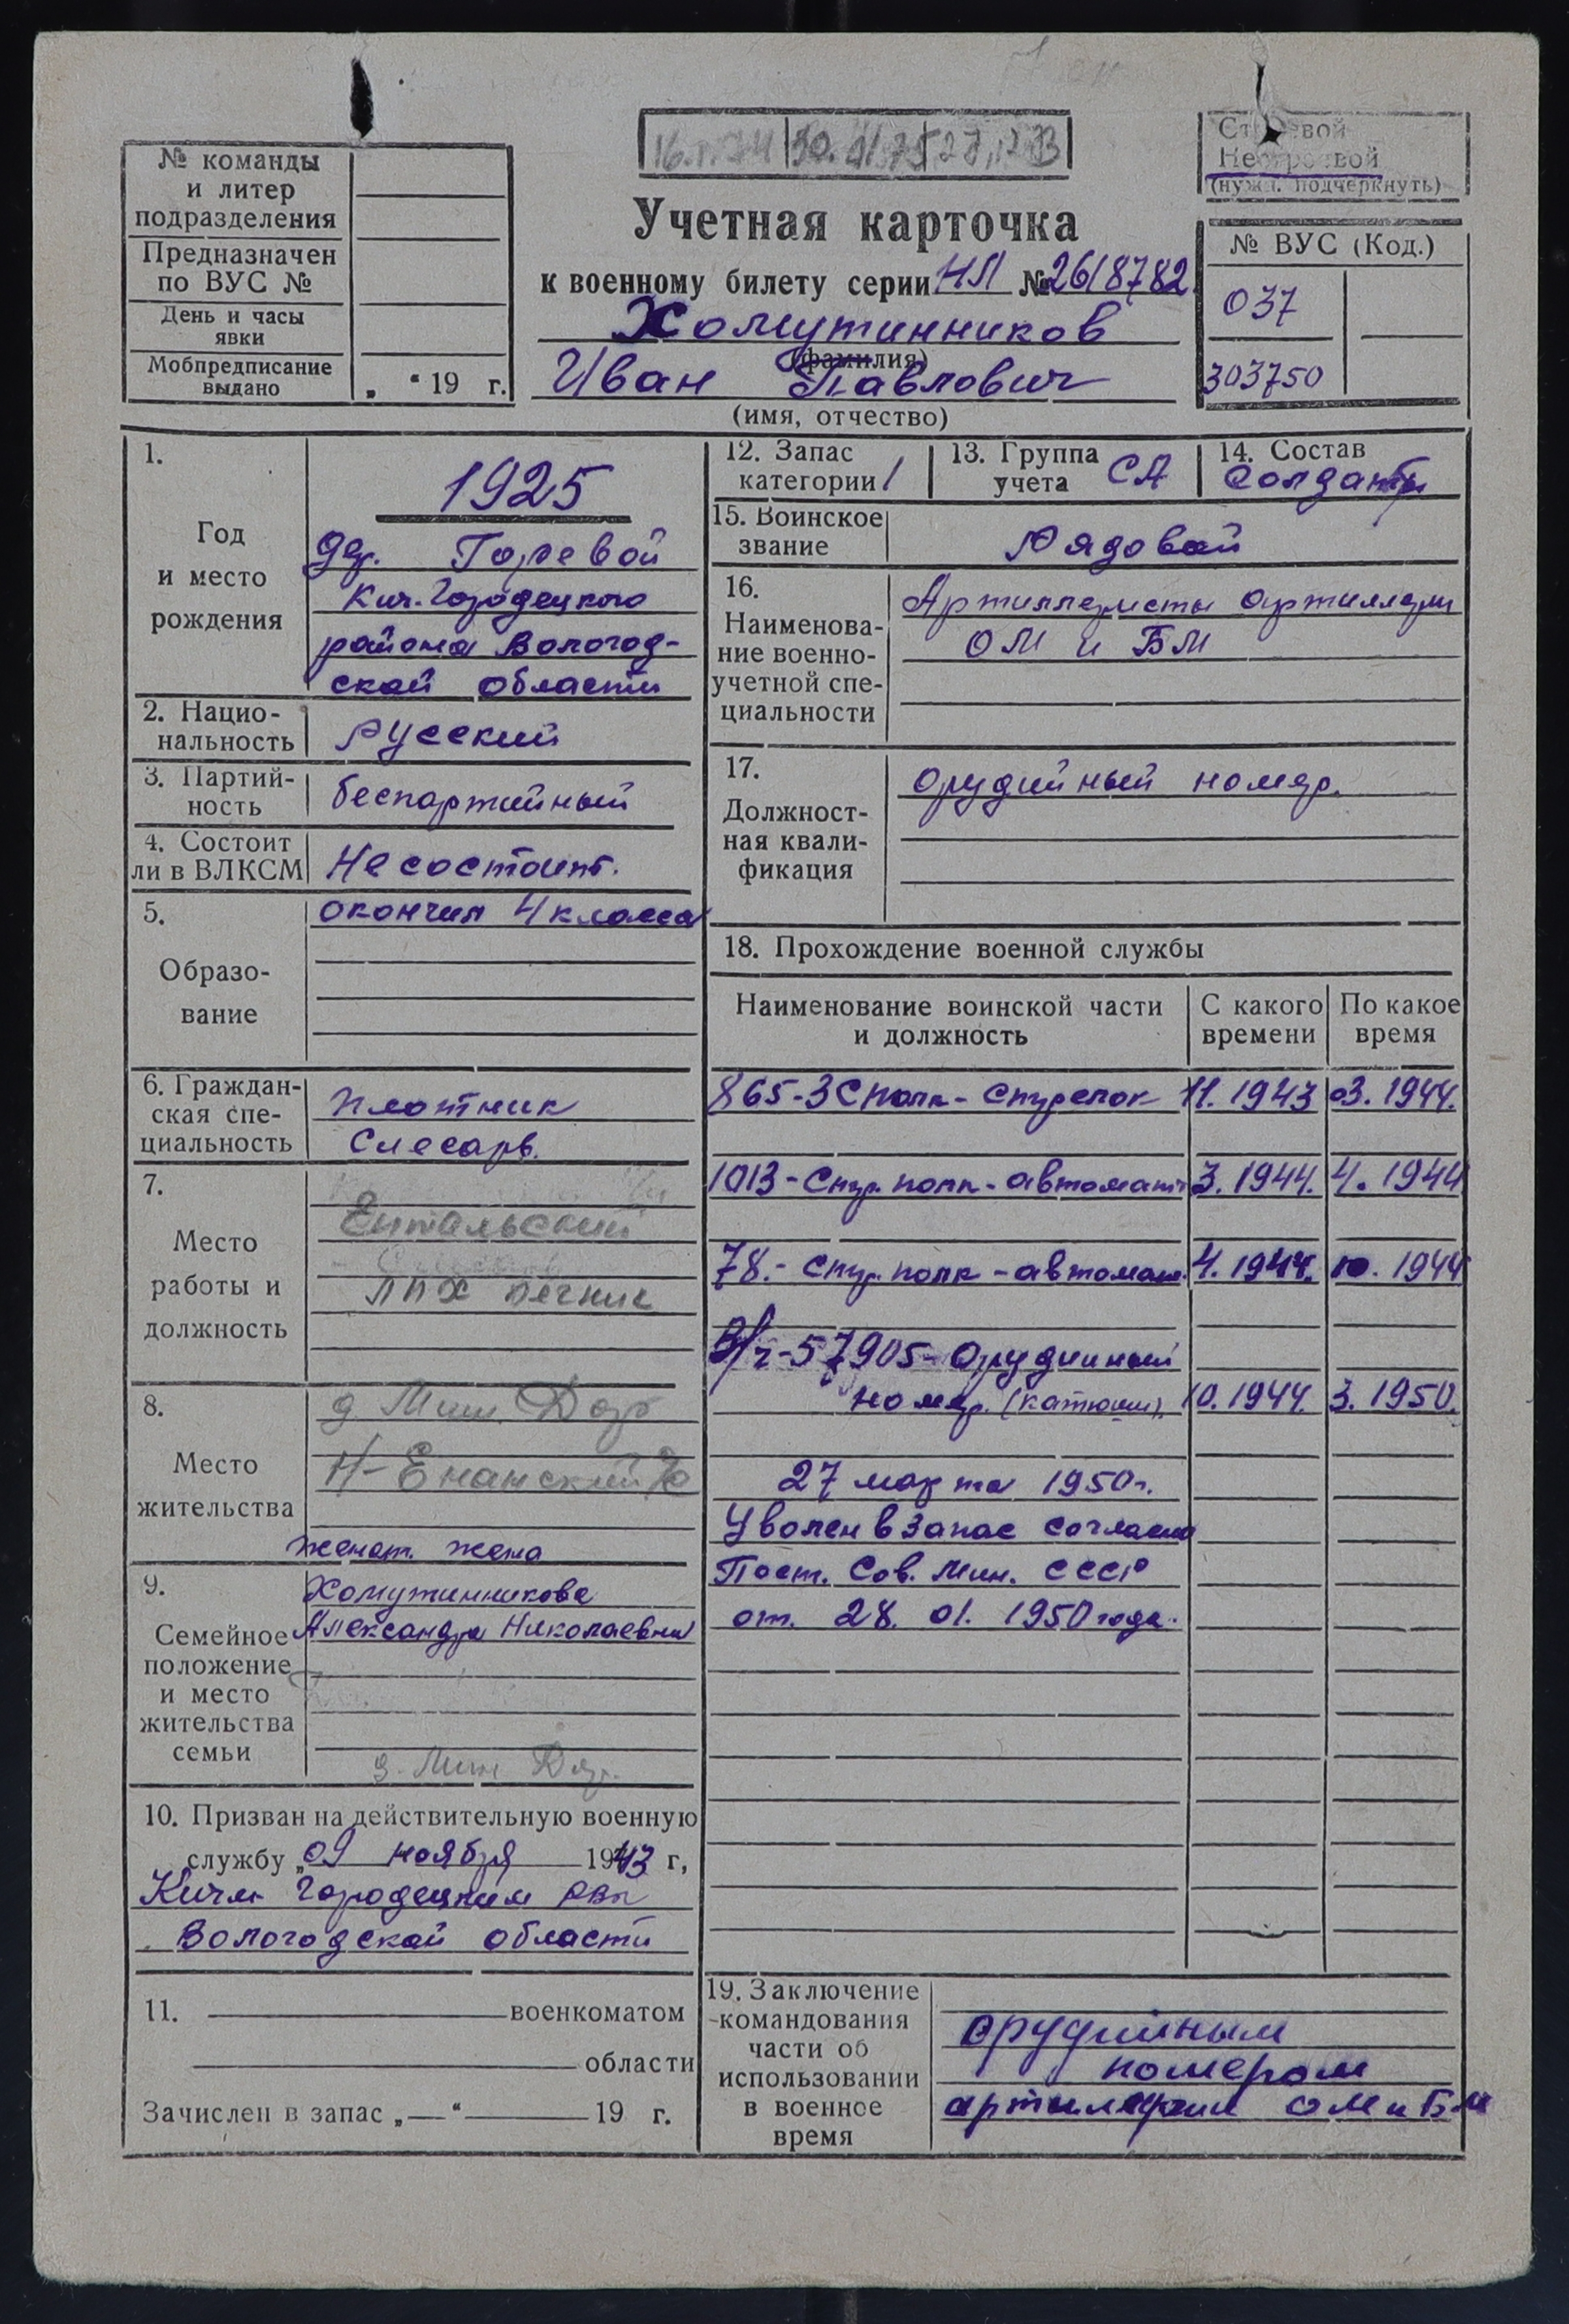 Строевой
Нестроевой
(нужн. подчеркнуть)
№ команды
и литер
подразделения
Предназначен
по ВУС №
День и часы
явки
Мобпредписание
выдано
„ “ 19 г.
Учетная карточка
к военному билету серии НЛ № 2618782
Хомутинников
(фамилия)
Иван Павлович
(имя, отчество)
№ ВУС (Код.)
037
303750
1.
Год
и место
рождения
1925
дер. Горевой
Кич.-Городецкого
района Вологод-
ской области
2. Нацио-
нальность
Русский
3. Партий-
ность
беспартийный
4. Состоит
ли в ВЛКСМ
Не состоит.
5.
Образо-
вание
окончил 4 класса
6. Граждан-
ская спе-
циальность
Плотник
Слесарь.
7.
Место
работы и
должность
Ентальский
ЛПХ печник
8.
Место
жительства
д. Мин. Дор
Н-Енанский
Женат. жена
9.
Семейное
положение
и место
жительства
семьи
Хомутинникова
Александра Николаевна
д. Мин Дор.
10. Призван на действительную военную
службу „09 ноября 1943 г,
Кичм Городецким РВк
Вологодской области
11. военкоматом
области
Зачислен в запас „—“ 19 г.
12. Запас
категории 1
13. Группа
учета СА
14. Состав
Солдаты
15. Воинское
звание
Рядовой
16.
Наименова-
ние военно-
учетной спе-
циальности
Артиллеристы артиллери
ОМ и БМ
17.
Должност-
ная квали-
фикация
орудийный номер.
18. Прохождение военной службы
Наименование воинской части
и должность
С какого
времени
По какое
время
865-ЗСполк- стрелок 11. 1943 03. 1944.
1013-Стр. полк-автомат 3. 1944. 4. 1944
78.- стр. полк-автомат. 4. 1944. 10. 1944
В/ч-57905-Орудийный
номер. (катюши). 10. 1944. 3. 1950.
27 марта 1950г.
Уволен в запас согласно
Пост. Сов. Мин. СССР
от. 28. 01. 1950 года.
19. Заключение
командования
части об
использовании
в военное
время
орудийным
номером
артилерии ОМ и БМ